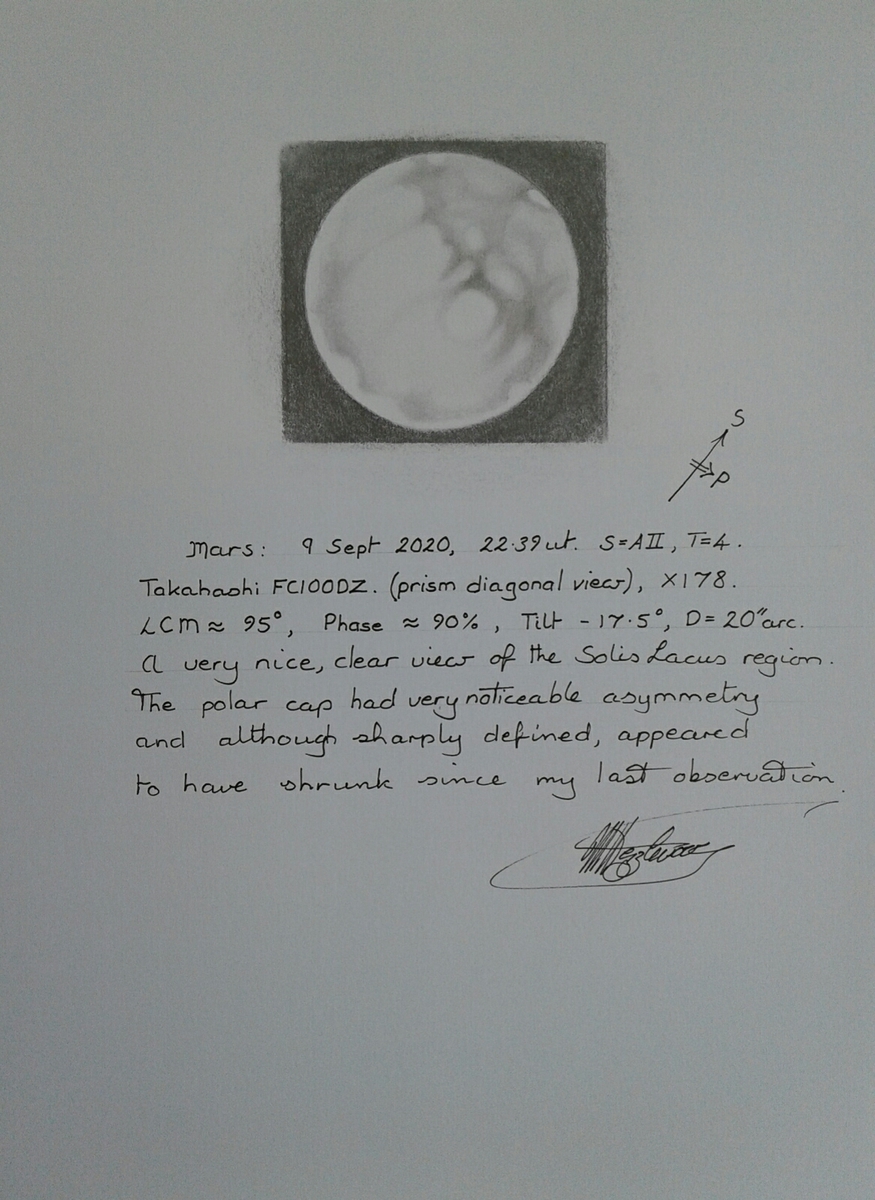 S
P
Mars: 9 Sept 2020, 22.39ut. S=AII, T=4.
Takahashi FC100DZ. (prism diagonal view), X178.
LCM ≈ 95°, Phase ≈ 90%, Tilt -17.5°, D=20"arc.
A very nice, clear view of the Solis Lacus region.
The polar cap had very noticeable asymmetry
and although sharply defined, appeared
to have shrunk since my last observation.